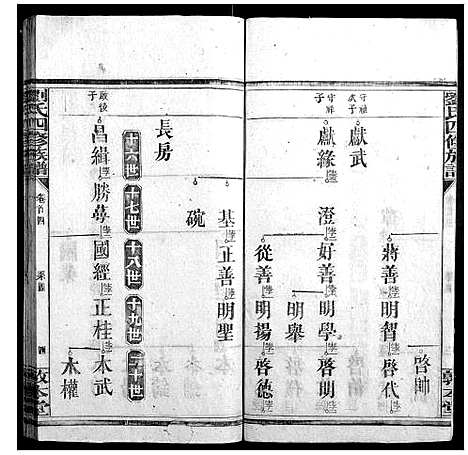 劉氏四修族譜
敦本堂
啓帥
蔣善 明智 啓代
守祖武子 獻武
守祥子 獻緣 澄 好善 明學 啓明
明舉
從善 明揚 啓德
基 正善 明聖
碗
長房
十六世 十七世 十八世 十九世 二十世
啟後子 昌緝 勝尋 國經 正桂 本武
本權
劉氏四修族譜
卷首四
四
敦本堂